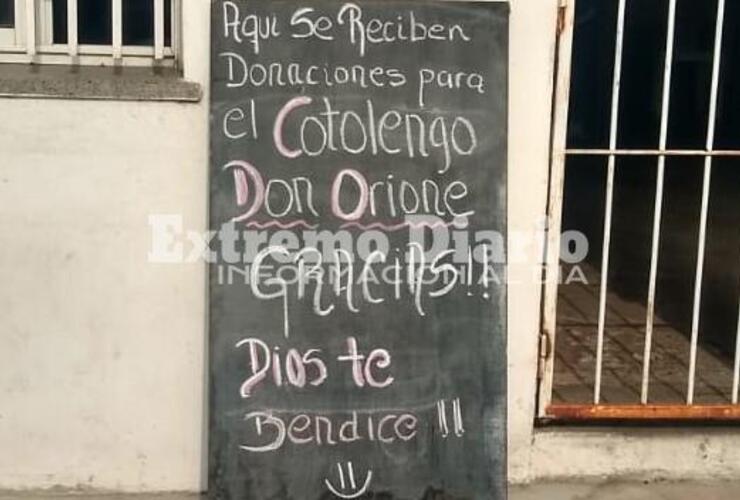 Aquí Se Reciben
Donaciones para
el Cotolengo
Don Orione
Extremo Diario
INFORMACION AL DIA
GRACIAS!!
Dios te
Bendice!!